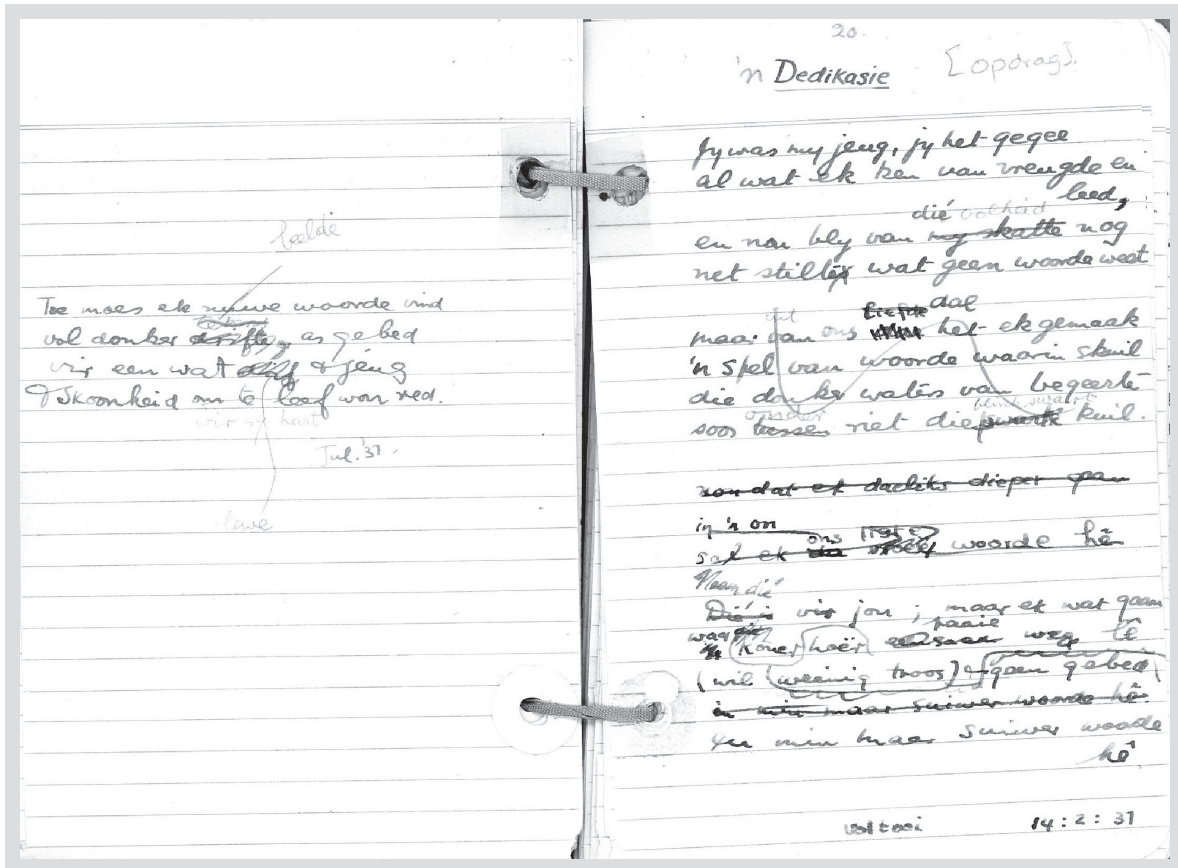 beelde
Toe moes ek nuwe woorde vind
vol donker drifte, as gebed
vir een wat & jeug
& skoonheid om te leef won red.
vir sy hart
Jul. '37.
lewe
20.
'n Dedikasie [opdrag].
Jy was my jeug, jy het gegee
al wat ek ken van vreugde en
leed,
dié volheid
en nou bly van my skatte nog
net stiltes wat geen woorde weet
uit liefde dae
maar van ons het ek gemaak
'n spel van woorde waarin skuil
die donker waters van begeerte
onder blinkswart
soos tussen riet die swart kuil.
noudat ek dadeliks dieper gaan
in 'n on
ons
sal ek da woorde hê
Neem dié
Dié is vir jou; maar ek wat gaan
waar die paaie
'n kouer hoër eensaam weg
(wil weinig troos) & geen gebed
in min maar suiwer woorde hê
en min maar suiwer woorde
hê
voltooi 14:2:37